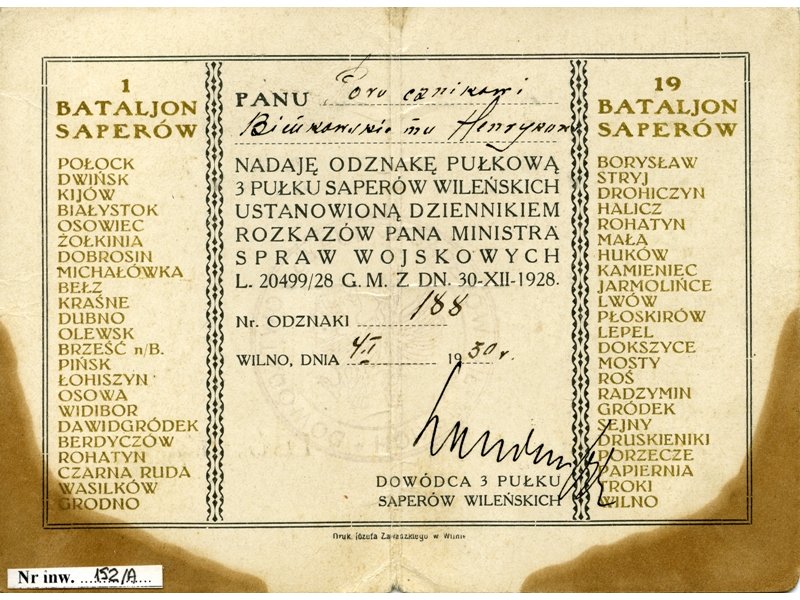 1
BATALJON
SAPERÓW
POŁOCK
DWIŃSK
KIJÓW
BIAŁYSTOK
OSOWIEC
ŻOŁKINIA
DOBROSIN
MICHAŁÓWKA
BEŁZ
KRAŚNE
DUBNO
OLEWSK
BRZEŚĆ n/B.
PIŃSK
ŁOHISZYN
OSOWA
WIDIBOR
DAWIDGRÓDEK
BERDYCZÓW
ROHATYN
CZARNA RUDA
WASILKÓW
GRODNO
PANU Poru cznikowi
Bieńkowskie mu Henrykowi
NADAJĘ ODZNAKĘ PUŁKOWĄ
3 PUŁKU SAPERÓW WILEŃSKICH
USTANOWIONĄ DZIENNIKIEM
ROZKAZÓW PANA MINISTRA
SPRAW WOJSKOWYCH
L. 20499/28 G. M. Z DN. 30-XII-1928.
Nr. ODZNAKI 188
WILNO, DNIA 4/II 1930 r.
DOWÓDCA 3 PUŁKU
SAPERÓW WILEŃSKICH
19
BATALJON
SAPERÓW
BORYSŁAW
STRYJ
DROHICZYN
HALICZ
ROHATYN
MAŁA
HUKÓW
KAMIENIEC
JARMOLIŃCE
LWÓW
PŁOSKIRÓW
LEPEL
DOKSZYCE
MOSTY
ROŚ
RADZYMIN
GRÓDEK
SEJNY
DRUSKIENIKI
PORZECZE
PAPIERNIA
TROKI
WILNO
Druk. Józefa Zawadzkiego w Wilnie
Nr inw. 152/A